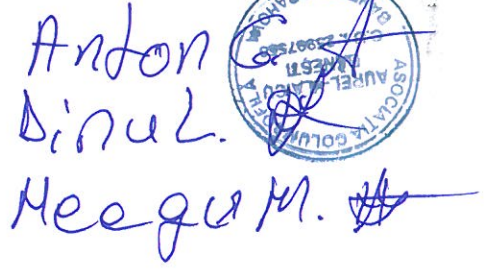 Anton G.
Dinu L.
Neagu M.
ASOCIAȚIA COLUMBOFILĂ
AUREL VLAICU
BĂNEȘTI